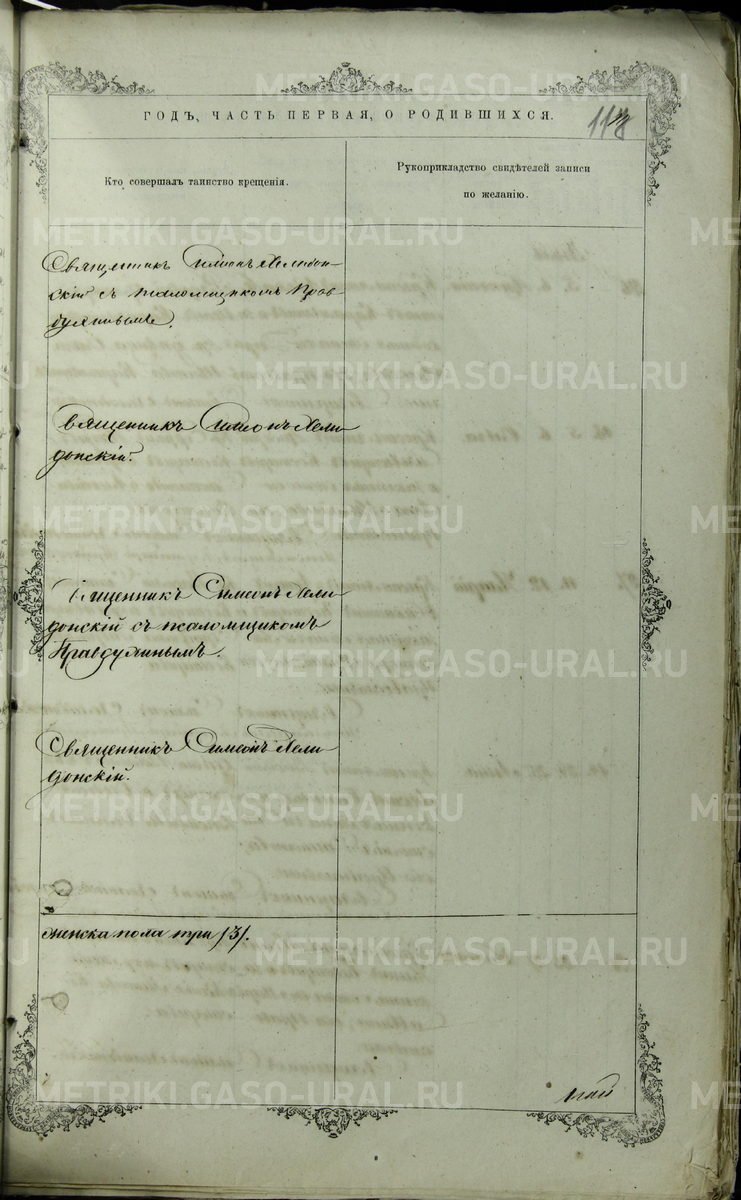 METRIKI.GASO-URAL.RU
ГОДЪ, ЧАСТЬ ПЕРВАЯ, О РОДИВШИХСЯ.
118
Кто совершалъ таинство крещенія.
Рукоприкладство свидѣтелей записи
по желанію.
Священникъ Симеонъ Хелидон-
скій съ псаломщикомъ Прав-
дулинымъ.
Священникъ Симеонъ Хели
донскій.
Священникъ Симеонъ Хели
донскій съ псаломщикомъ
Правдулинымъ.
Священникъ Симеонъ Хели
донскій.
женска пола три /3/.
май